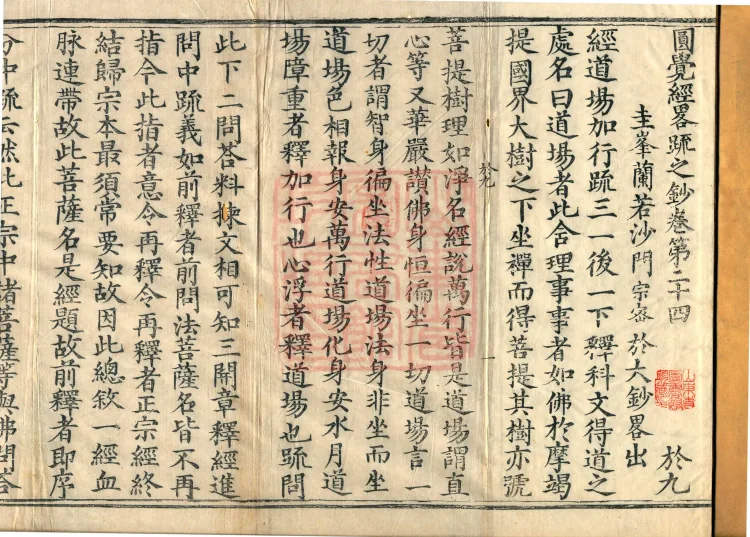 圓覺經畧疏之鈔卷第二十四 於九
圭峯蘭若沙門宗密於大鈔畧出
經道場加行疏三一後一下釋科文得道之
處名曰道場者此含理事事者如佛於摩竭
提國界大樹之下坐禪而得菩提其樹亦號
於九 一
菩提樹理如淨名經說萬行皆是道場謂直
心等又華嚴讚佛身恒徧坐一切道場言一
切者謂智身徧坐法性道場法身非坐而坐
道場色相報身安萬行道場化身安水月道
場障重者釋加行也心浮者釋道場也疏問
此下二問荅料揀文相可知三開章釋經進
問中疏義如前釋者前問法菩薩名皆不再
指今此指者意令再釋令再釋者正宗經終
結歸宗本最須常要知故因此總敘一經血
脉連帶故此菩薩名是經題故前釋者即序
分中疏云然此正宗中諸菩薩等與佛問荅